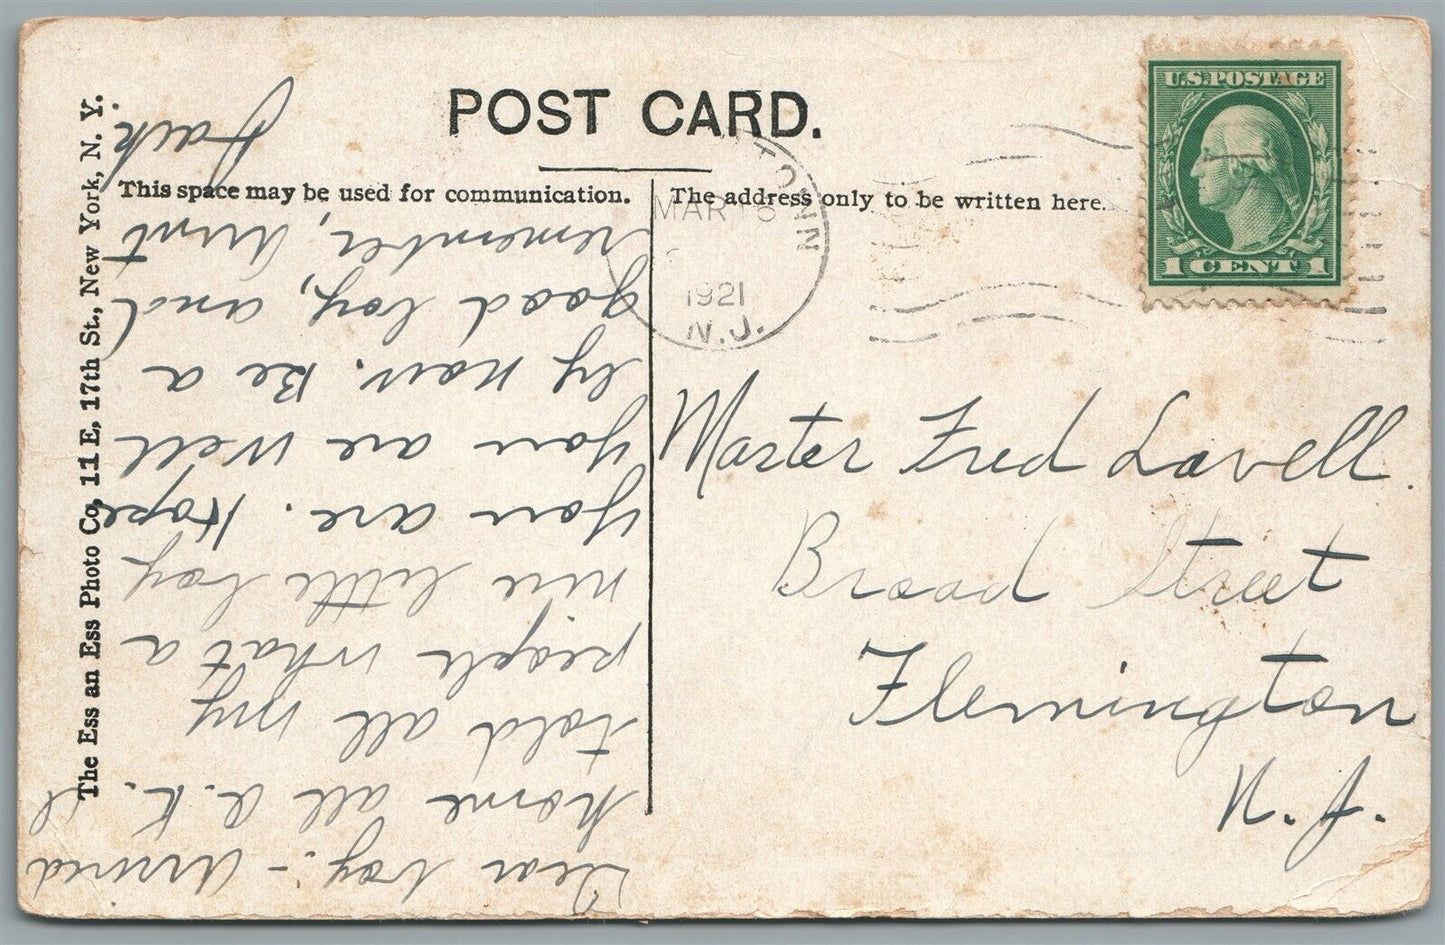 POST CARD.
This space may be used for communication.
The address only to be written here.
The Ess an Ess Photo Co, 11 E, 17th St., New York, N. Y.
U.S. POSTAGE
1 CENT 1
TOWN
MAR
1921
N.J.
Master Fred Lavell.
Broad Street
Flemington
N. J.
Dear boy:- Arrived
home all O.K. I
told all my
people what a
nice little boy
you are. Hope
you are well
by now. Be a
good boy, and
remember, Aunt
Jack